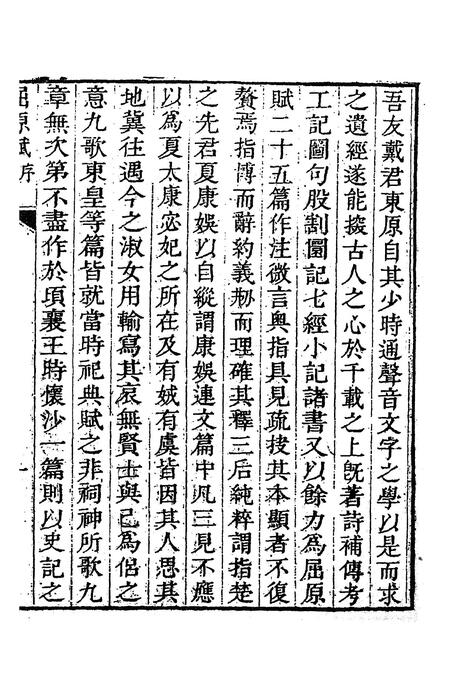 吾友戴君東原自其少時通聲音文字之學以是而求
之遺經遂能探古人之心於千載之上旣著詩補傳考
工記圖句股割圜記七經小記諸書又以餘力為屈原
賦二十五篇作注微言奧指具見疏抉其本顯者不復
贅焉指博而辭約義刱而理確其釋三后純粹謂指楚
之先君夏康娛以自縱謂康娛連文篇中凡三見不應
以為夏太康宓妃之所在及有娀有虞皆因其人思其
地冀往遇今之淑女用輸寫其哀無賢士與己為侶之
意九歌東皇等篇皆就當時祀典賦之非祠神所歌九
章無次第不盡作於頃襄王時懷沙一篇則以史記之
屈原賦序
一